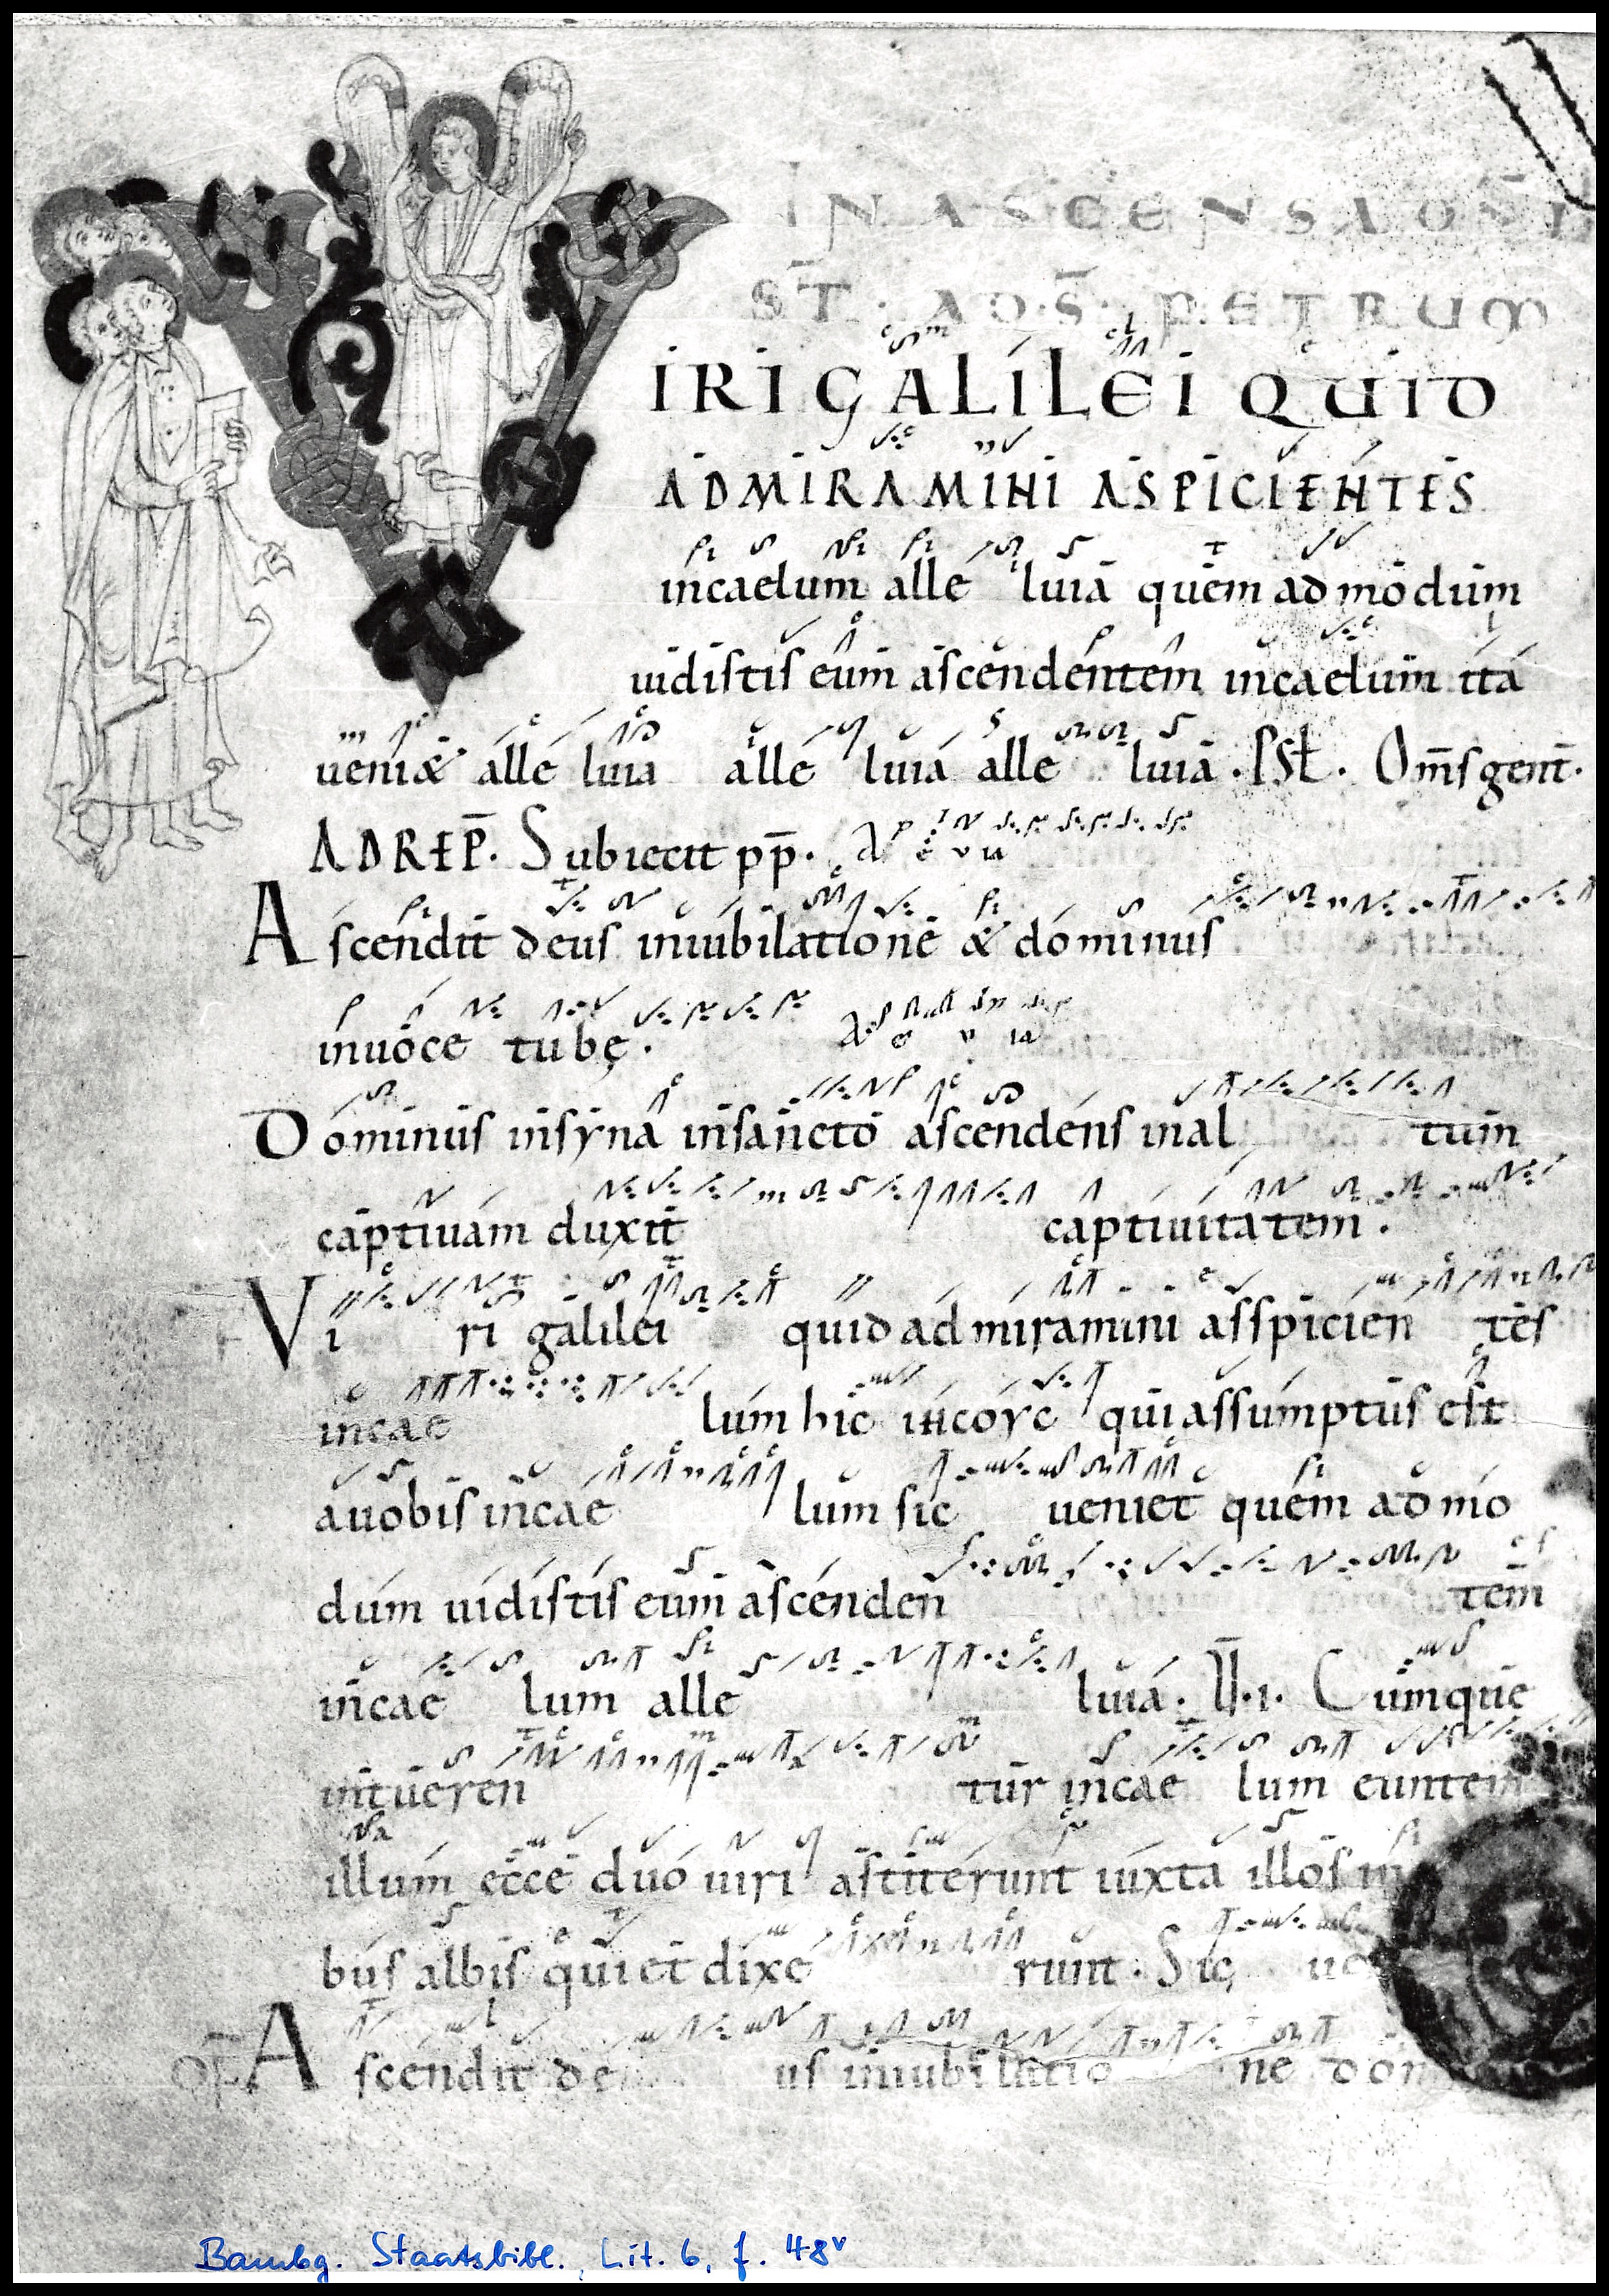 IN ASCENSA DŇI
ST̄. AD. S̄. PETRUM
VIRI GALILEI QUID
ADMIRAMINI ASPICIENTES
incaelum alle luia quem ad modum
uidistis eum ascendentem incaelum ita
ueni& alle luia alle luia alle luia. PSŁ. Om̄s gent̄.
AD REP̄. Subiecit pp̄. A e v ia
Ascendit deus iniubilatione & dominus
inuoce tubę. A e v ia
Dominus insyna insancto ascendens inal tum
captiuam duxit captiuitatem.
Vi ri galilei quid admiramini asspicien tes
incae lum hic incorc qui assumptus est
auobis incae lum sic ueniet quem ad mo
dum uidistis eum ascenden tem
incae lum alle luia. V. I. Cumque
intueren tur incae lum euntem
illum ecce duo uiri astiterunt iuxta illos in
bus albis qui et dixe runt. Sic ue
OF Ascendit de us iniubilatio ne dom
Bambg. Staatsbibl., Lit. 6, f. 48v